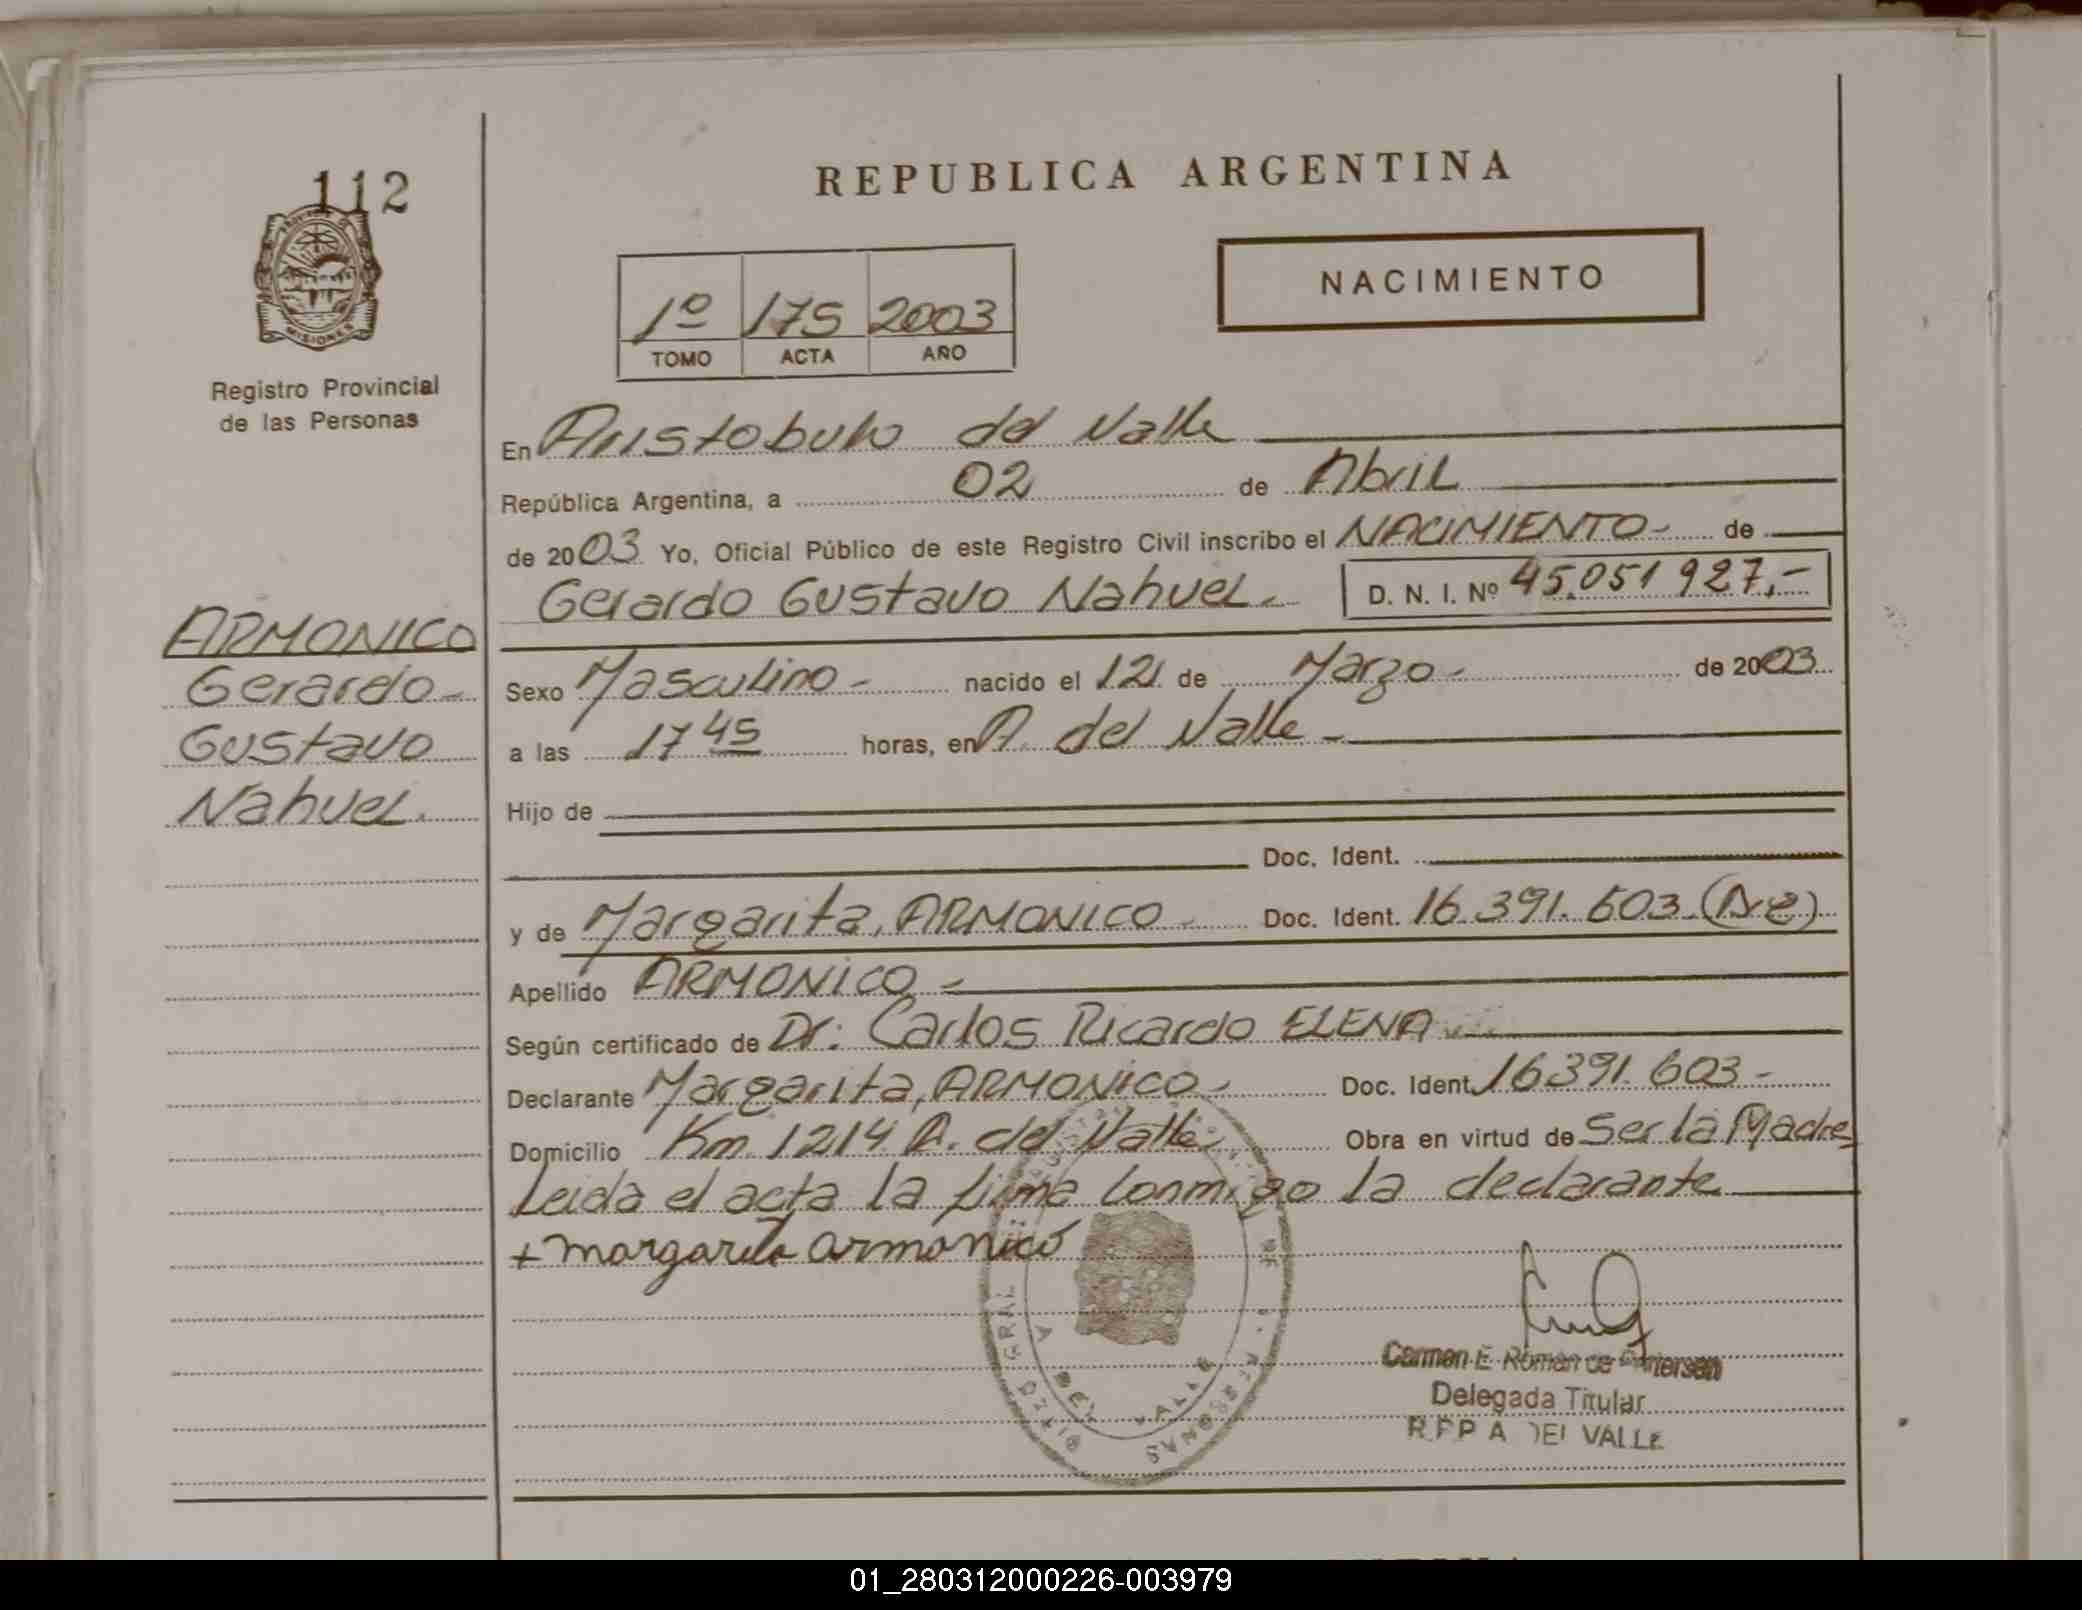 112
REPUBLICA ARGENTINA
NACIMIENTO
1º 175 2003
TOMO ACTA AÑO
MISIONES
Registro Provincial
de las Personas
En Aristobulo del Valle
República Argentina, a 02 de Abril
de 2003 Yo, Oficial Público de este Registro Civil inscribo el NACIMIENTO- de
Gerardo Gustavo Nahuel. D. N. I. Nº 45.051 927,-
ARMONICO
Gerardo-
Gustavo
Nahuel.
Sexo Masculino- nacido el 12 de Marzo- de 2003
a las 17 45 horas, en A. del Valle-
Hijo de
Doc. Ident.
y de Margarita, ARMONICO- Doc. Ident. 16.391.603
Apellido ARMONICO-
Según certificado de Dr: Carlos Ricardo ELENA
Declarante Margarita, ARMONICO- Doc. Ident. 16391.603-
Domicilio Km. 1214 A. del Valle Obra en virtud de Ser la Madre
Leida el acta la firma conmigo la declarante
+ margarita armonico
Carmen E. Roman de
Delegada Titular
R.P.P A DEL VALLE
01_280312000226-003979